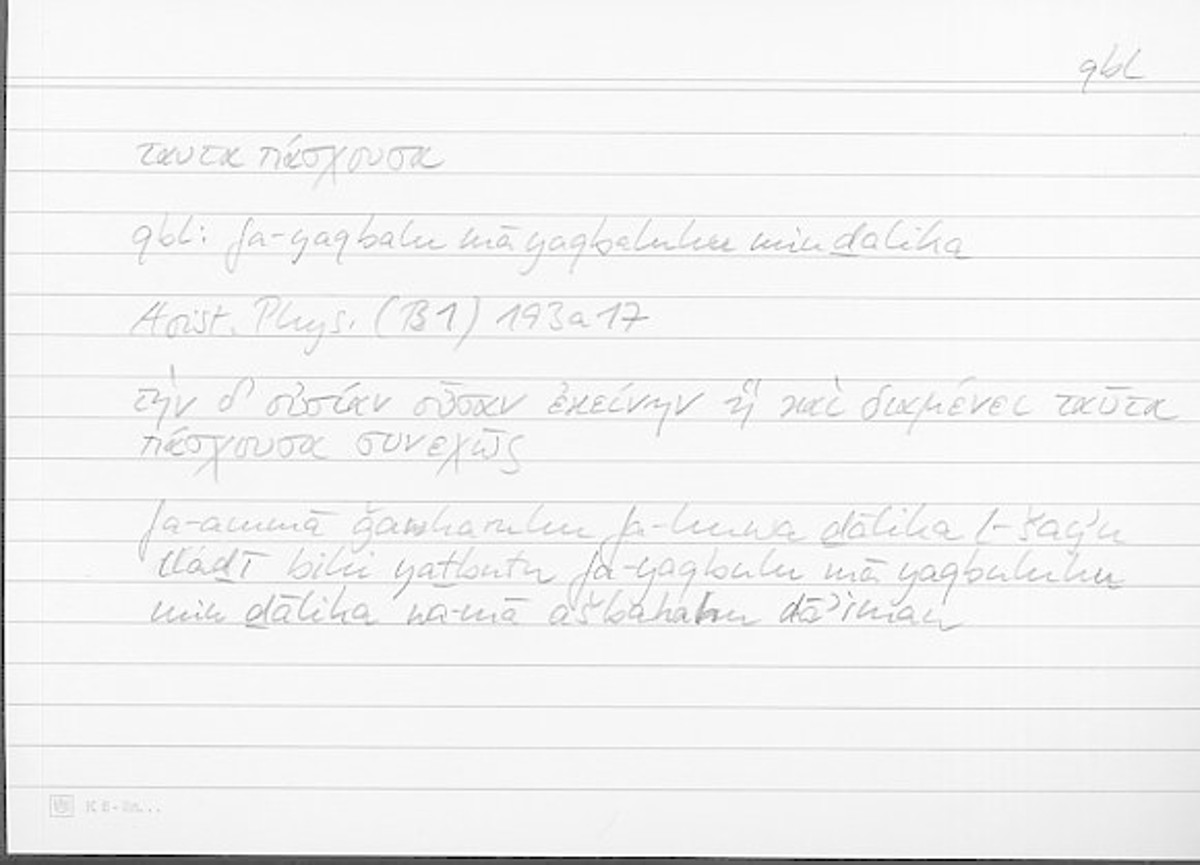 qbl
ταυτα πάσχουσα
qbl: fa-yaqbalu mā yaqbaluhu min ḏalika
Arist. Phys. (B1) 193a17
τὴν δ' οὐσίαν οὖσαν ἐκείνην ἣ καὶ διαμένει ταῦτα
πάσχουσα συνεχῶς
fa-ammā ǧawharuhu fa-huwa ḏālika l-šayʾu
llaḏī bihi yaṯbutu fa-yaqbulu mā yaqbuluhu
min ḏālika wa-mā ašbahahu dāʾiman